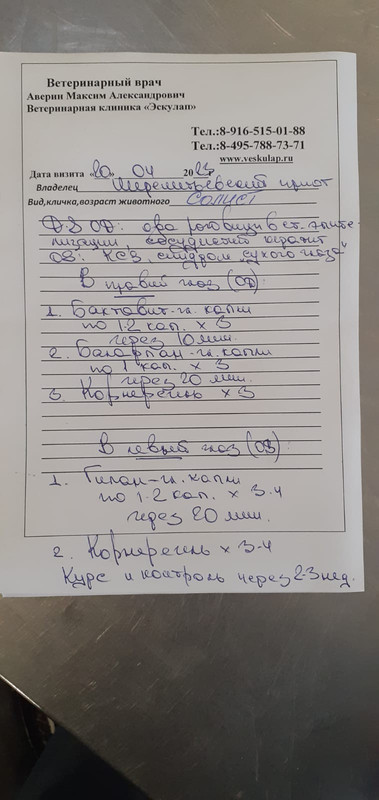 Ветеринарный врач
Аверин Максим Александрович
Ветеринарная клиника «Эскулап»
Тел.:8-916-515-01-88
Тел.:8-495-788-73-71
www.veskulap.ru
Дата визита «20» 04 20
Владелец Шереметьевский приют
Вид,кличка,возраст животного
Д-З OD: язва роговицы в ст. эпите-
лизации, сосудистый кератит
OS: КСЗ, синдром „сухого глаза"
В правый глаз (OD):
1. Бактавит-гл. капли
по 1-2 кап. х 3
через 10 мин.
2. Баларпан-гл. капли
по 1 кап. х 3
через 20 мин.
3. Корнерегель х 3
В левый глаз (OS):
1. Гилан-гл. капли
по 1-2 кап. х 3-4
через 20 мин.
2. Корнерегель х 3-4
Курс и контроль через 2-3 нед.